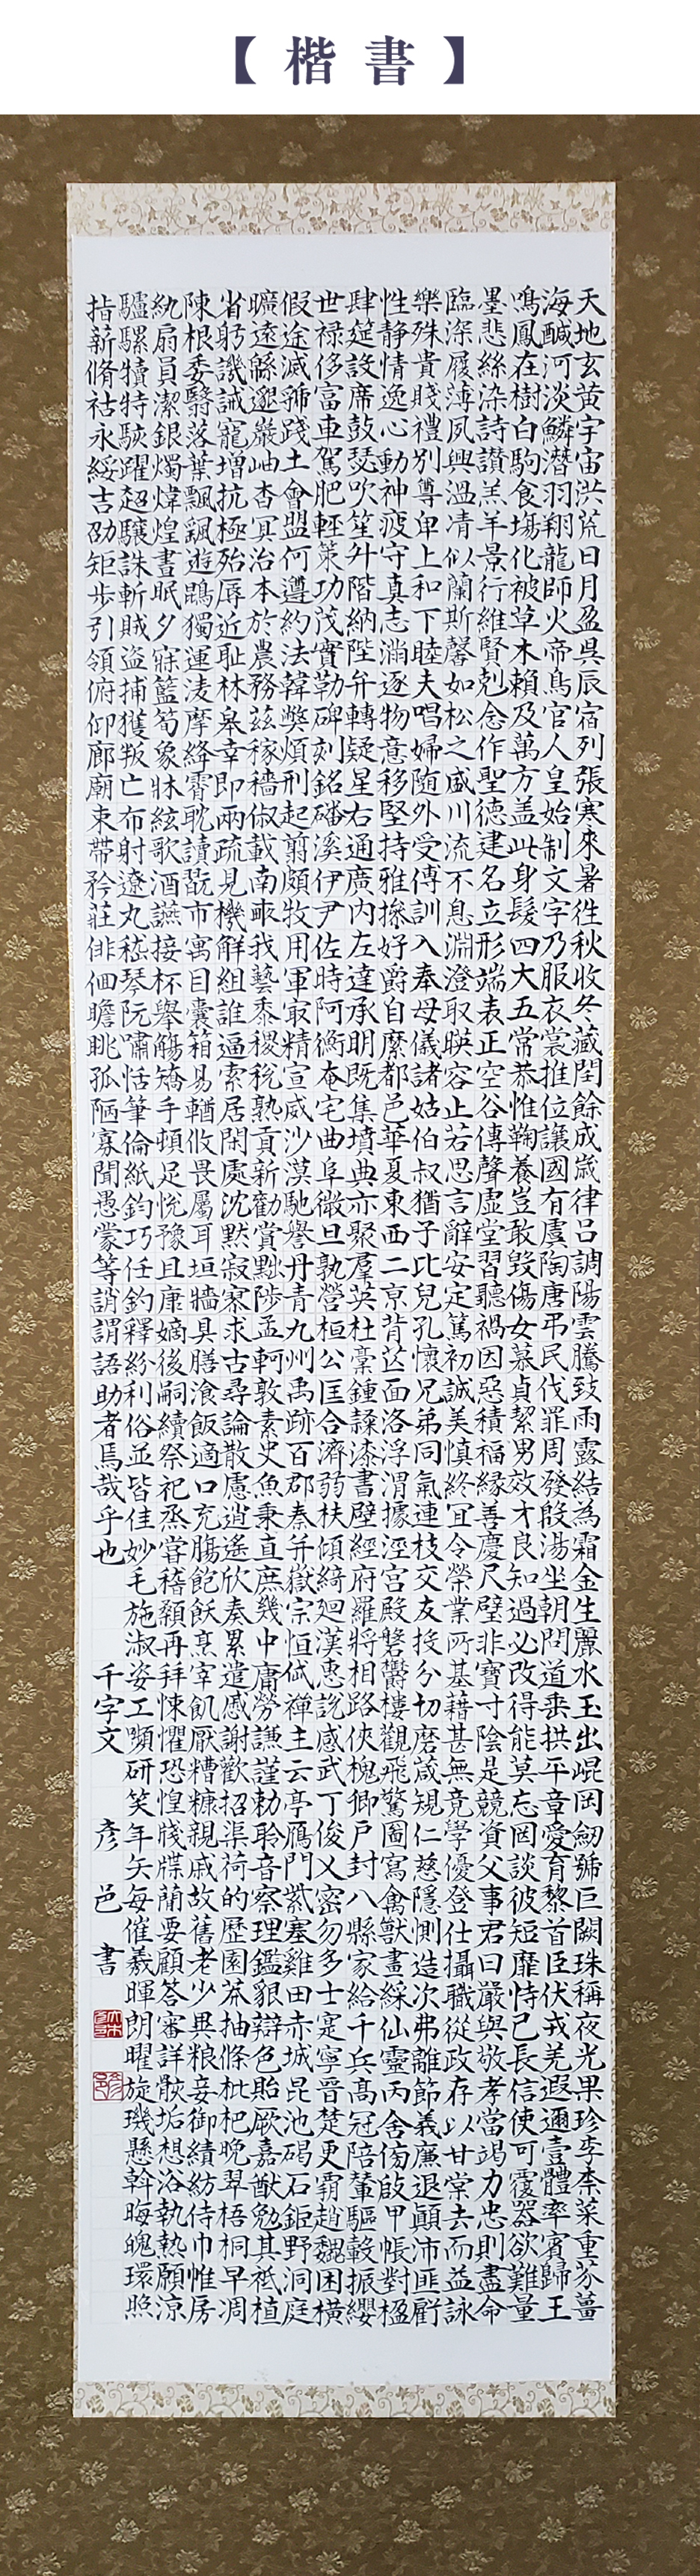 【楷書】
天地玄黄宇宙洪荒日月盈昃辰宿列張寒來暑往秋收冬藏閏餘成歳律吕調陽雲騰致雨露結為霜金生麗水玉出崐岡劒號巨闕珠稱夜光果珍李柰菜重芥薑
海鹹河淡鱗潛羽翔龍師火帝鳥官人皇始制文字乃服衣裳推位讓國有虞陶唐弔民伐罪周發殷湯坐朝問道垂拱平章愛育黎首臣伏戎羌遐邇壹體率賓歸王
鳴鳳在樹白駒食場化被草木賴及萬方盖此身髮四大五常恭惟鞠養豈敢毀傷女慕貞絜男效才良知過必改得能莫忘罔談彼短靡恃己長信使可覆器欲難量
墨悲絲染詩讃羔羊景行維賢剋念作聖德建名立形端表正空谷傳聲虚堂習聽禍因惡積福緣善慶尺璧非寶寸陰是競資父事君曰嚴與敬孝當竭力忠則盡命
臨深履薄夙興温凊似蘭斯馨如松之盛川流不息淵澄取暎容止若思言辭安定篤初誠美慎終宜令榮業所基藉甚無竟學優登仕攝職從政存以甘棠去而益詠
樂殊貴賤禮別尊卑上和下睦夫唱婦随外受傅訓入奉母儀諸姑伯叔猶子比兒孔懷兄弟同氣連枝交友投分切磨箴規仁慈隱惻造次弗離節義廉退顛沛匪虧
性静情逸心動神疲守真志滿逐物意移堅持雅操好爵自縻都邑華夏東西二京背芒面洛浮渭據涇宮殿磐欝樓觀飛驚圖寫禽獸畫綵仙靈丙舍傍啟甲帳對楹
肆筵設席鼓瑟吹笙升階納陛弁轉疑星右通廣内左達承明既集墳典亦聚羣英杜稾鍾隸漆書壁經府羅將相路俠槐卿户封八縣家給千兵高冠陪輦驅轂振纓
世禄侈富車駕肥輕策功茂實勒碑刻銘磻溪伊尹佐時阿衡奄宅曲阜微旦孰營桓公匡合濟弱扶傾綺廻漢惠説感武丁俊乂密勿多士寔寧晉楚更霸趙魏困横
假途滅虢踐土會盟何遵約法韓弊煩刑起翦頗牧用軍最精宣威沙漠馳譽丹青九州禹跡百郡秦并嶽宗恒岱禪主云亭鴈門紫塞雞田赤城昆池碣石鉅野洞庭
曠遠緜邈巖岫杳冥治本於農務兹稼穡俶載南畝我藝黍稷税熟貢新勸賞黜陟孟軻敦素史魚秉直庶幾中庸勞謙謹勅聆音察理鑑貌辯色貽厥嘉猷勉其祗植
省躬譏誡寵增抗極殆辱近耻林皋幸即兩疏見機解組誰逼索居閑處沈默寂寥求古尋論散慮逍遙欣奏累遣慼謝歡招渠荷的歴園莽抽條枇杷晚翠梧桐早凋
陳根委翳落葉飄颻遊鵾獨運凌摩絳霄耽讀翫市寓目囊箱易輶攸畏屬耳垣牆具膳飡飯適口充腸飽飫烹宰飢厭糟糠親戚故舊老少異粮妾御績紡侍巾帷房
紈扇員潔銀燭煒煌晝眠夕寐籃筍象牀絃歌酒讌接杯舉觴矯手頓足悦豫且康嫡後嗣續祭祀蒸嘗稽顙再拜悚懼恐惶牋牒簡要顧答審詳骸垢想浴執熱願涼
驢騾犢特駭躍超驤誅斬賊盗捕獲叛亡布射遼丸嵇琴阮嘯恬筆倫紙鈞巧任釣釋紛利俗並皆佳妙毛施淑姿工嚬研笑年矢每催羲暉朗曜旋璣懸斡晦魄環照
指薪脩祜永綏吉劭矩步引領俯仰廊廟束帶矜莊俳佪瞻眺孤陋寡聞愚蒙等誚謂語助者焉哉乎也 千字文 彦邑書